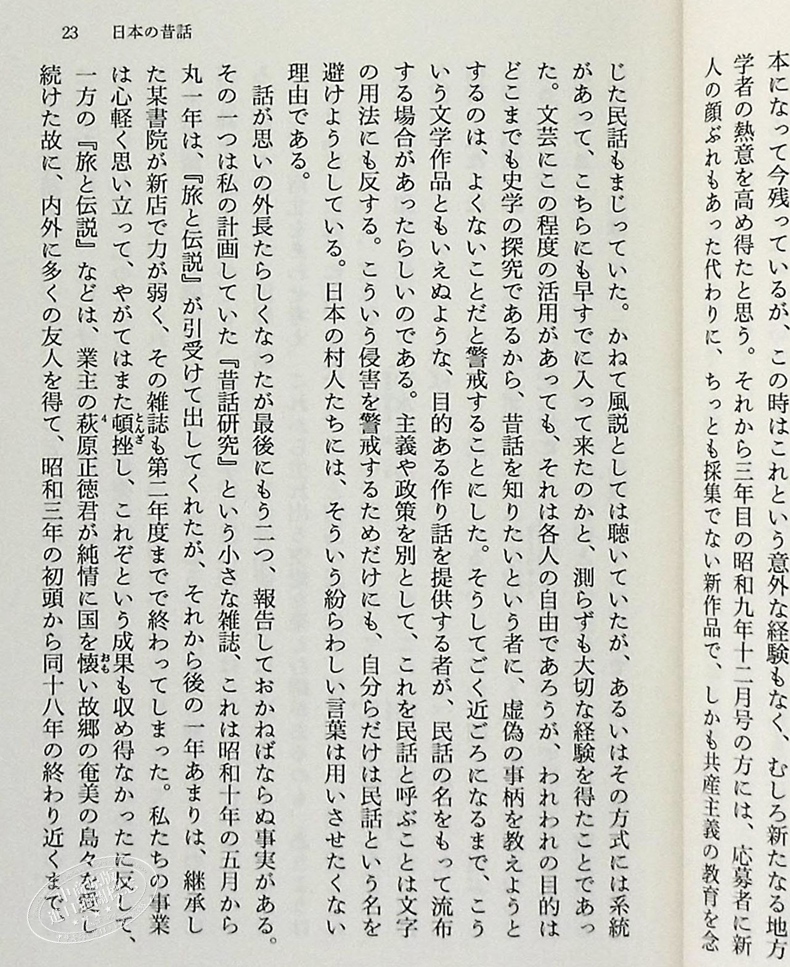 本になって今残っているが、この時はこれという意外な経験もなく、むしろ新たなる地方
学者の熱意を高め得たと思う。それから三年目の昭和九年十二月号の方には、応募者に新
人の顔ぶれもあった代わりに、ちっとも採集でない新作品で、しかも共産主義の教育を念
23 日本の昔話
じた民話もまじっていた。かねて風説としては聴いていたが、あるいはその方式には系統
があって、こちらにも早すでに入って来たのかと、測らずも大切な経験を得たことであっ
た。文芸にこの程度の活用があっても、それは各人の自由であろうが、われわれの目的は
どこまでも史学の探究であるから、昔話を知りたいという者に、虚偽の事柄を教えようと
するのは、よくないことだと警戒することにした。そうしてごく近ごろになるまで、こう
いう文学作品ともいえぬような、目的ある作り話を提供する者が、民話の名をもって流布
する場合があったらしいのである。主義や政策を別として、これを民話と呼ぶことは文字
の用法にも反する。こういう侵害を警戒するためだけにも、自分らだけは民話という名を
避けようとしている。日本の村人たちには、そういう紛らわしい言葉は用いさせたくない
理由である。
話が思いの外長たらしくなったが最後にもう二つ、報告しておかねばならぬ事実がある。
その一つは私の計画していた『昔話研究』という小さな雑誌、これは昭和十年の五月から
丸一年は、『旅と伝説』が引受けて出してくれたが、それから後の一年あまりは、継承し
た某書院が新店で力が弱く、その雑誌も第二年度までで終わってしまった。私たちの事業
は心軽く思い立って、やがてはまた頓挫とんざし、これぞという成果も収め得なかったに反して、
一方の『旅と伝説』などは、業主の萩原4正徳君が純情に国を懐おもい故郷の奄美の島々を愛し
続けた故に、内外に多くの友人を得て、昭和三年の初頭から同十八年の終わり近くまで